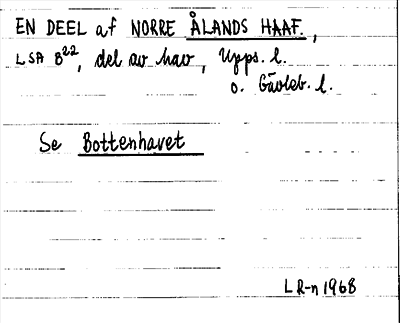 EN DEEL af NORRE ÅLANDS HAAF.,
LSA B²², del av hav, Upps. l.
o. Gävleb. l.
Se Bottenhavet
LR-n 1968